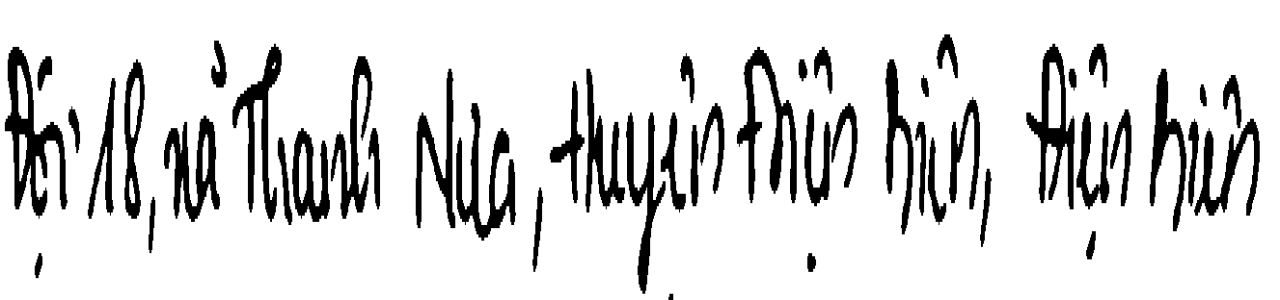 Đội 18, xã Thanh Nưa, huyện Điện Biên, Điện Biên